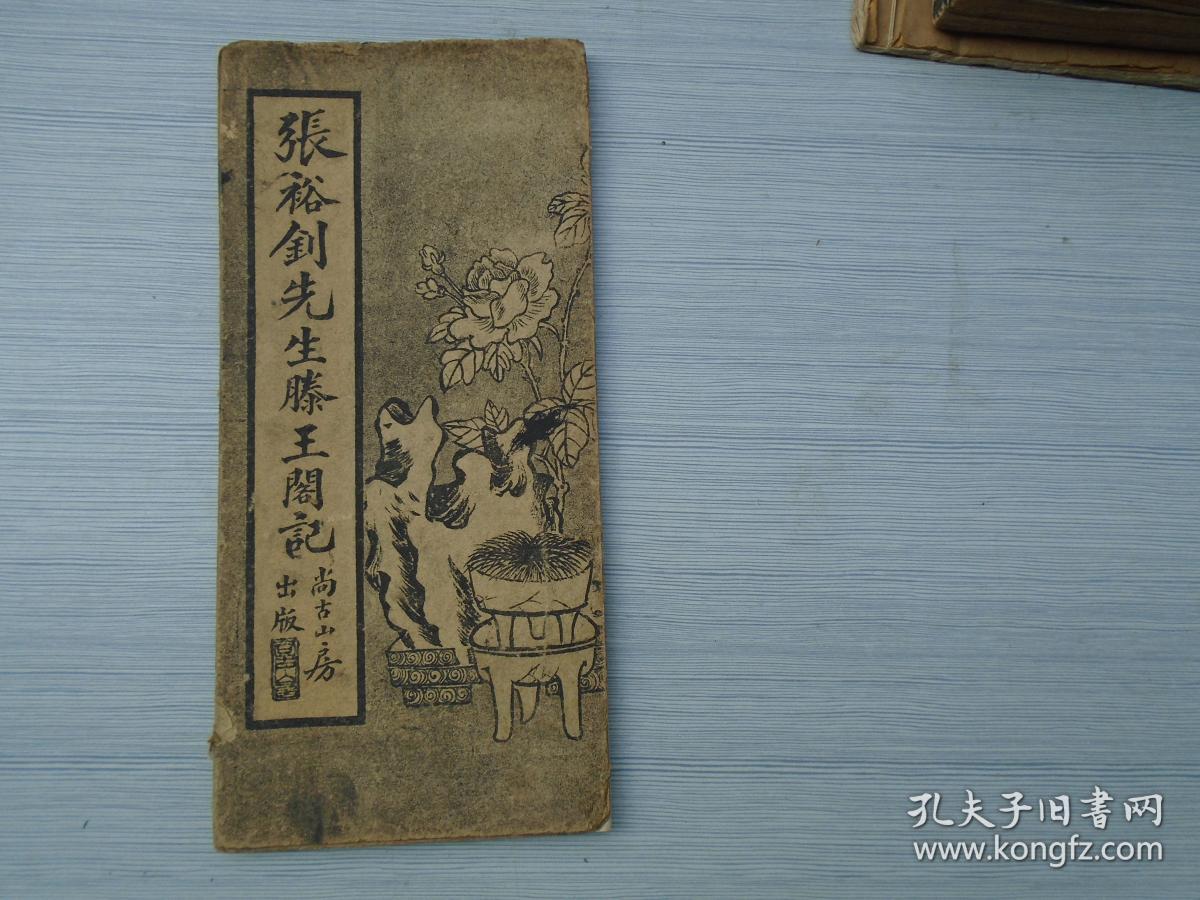 張裕釗先生滕王閣記
尚古山房
出版
孔夫子旧書网
www.kongfz.com